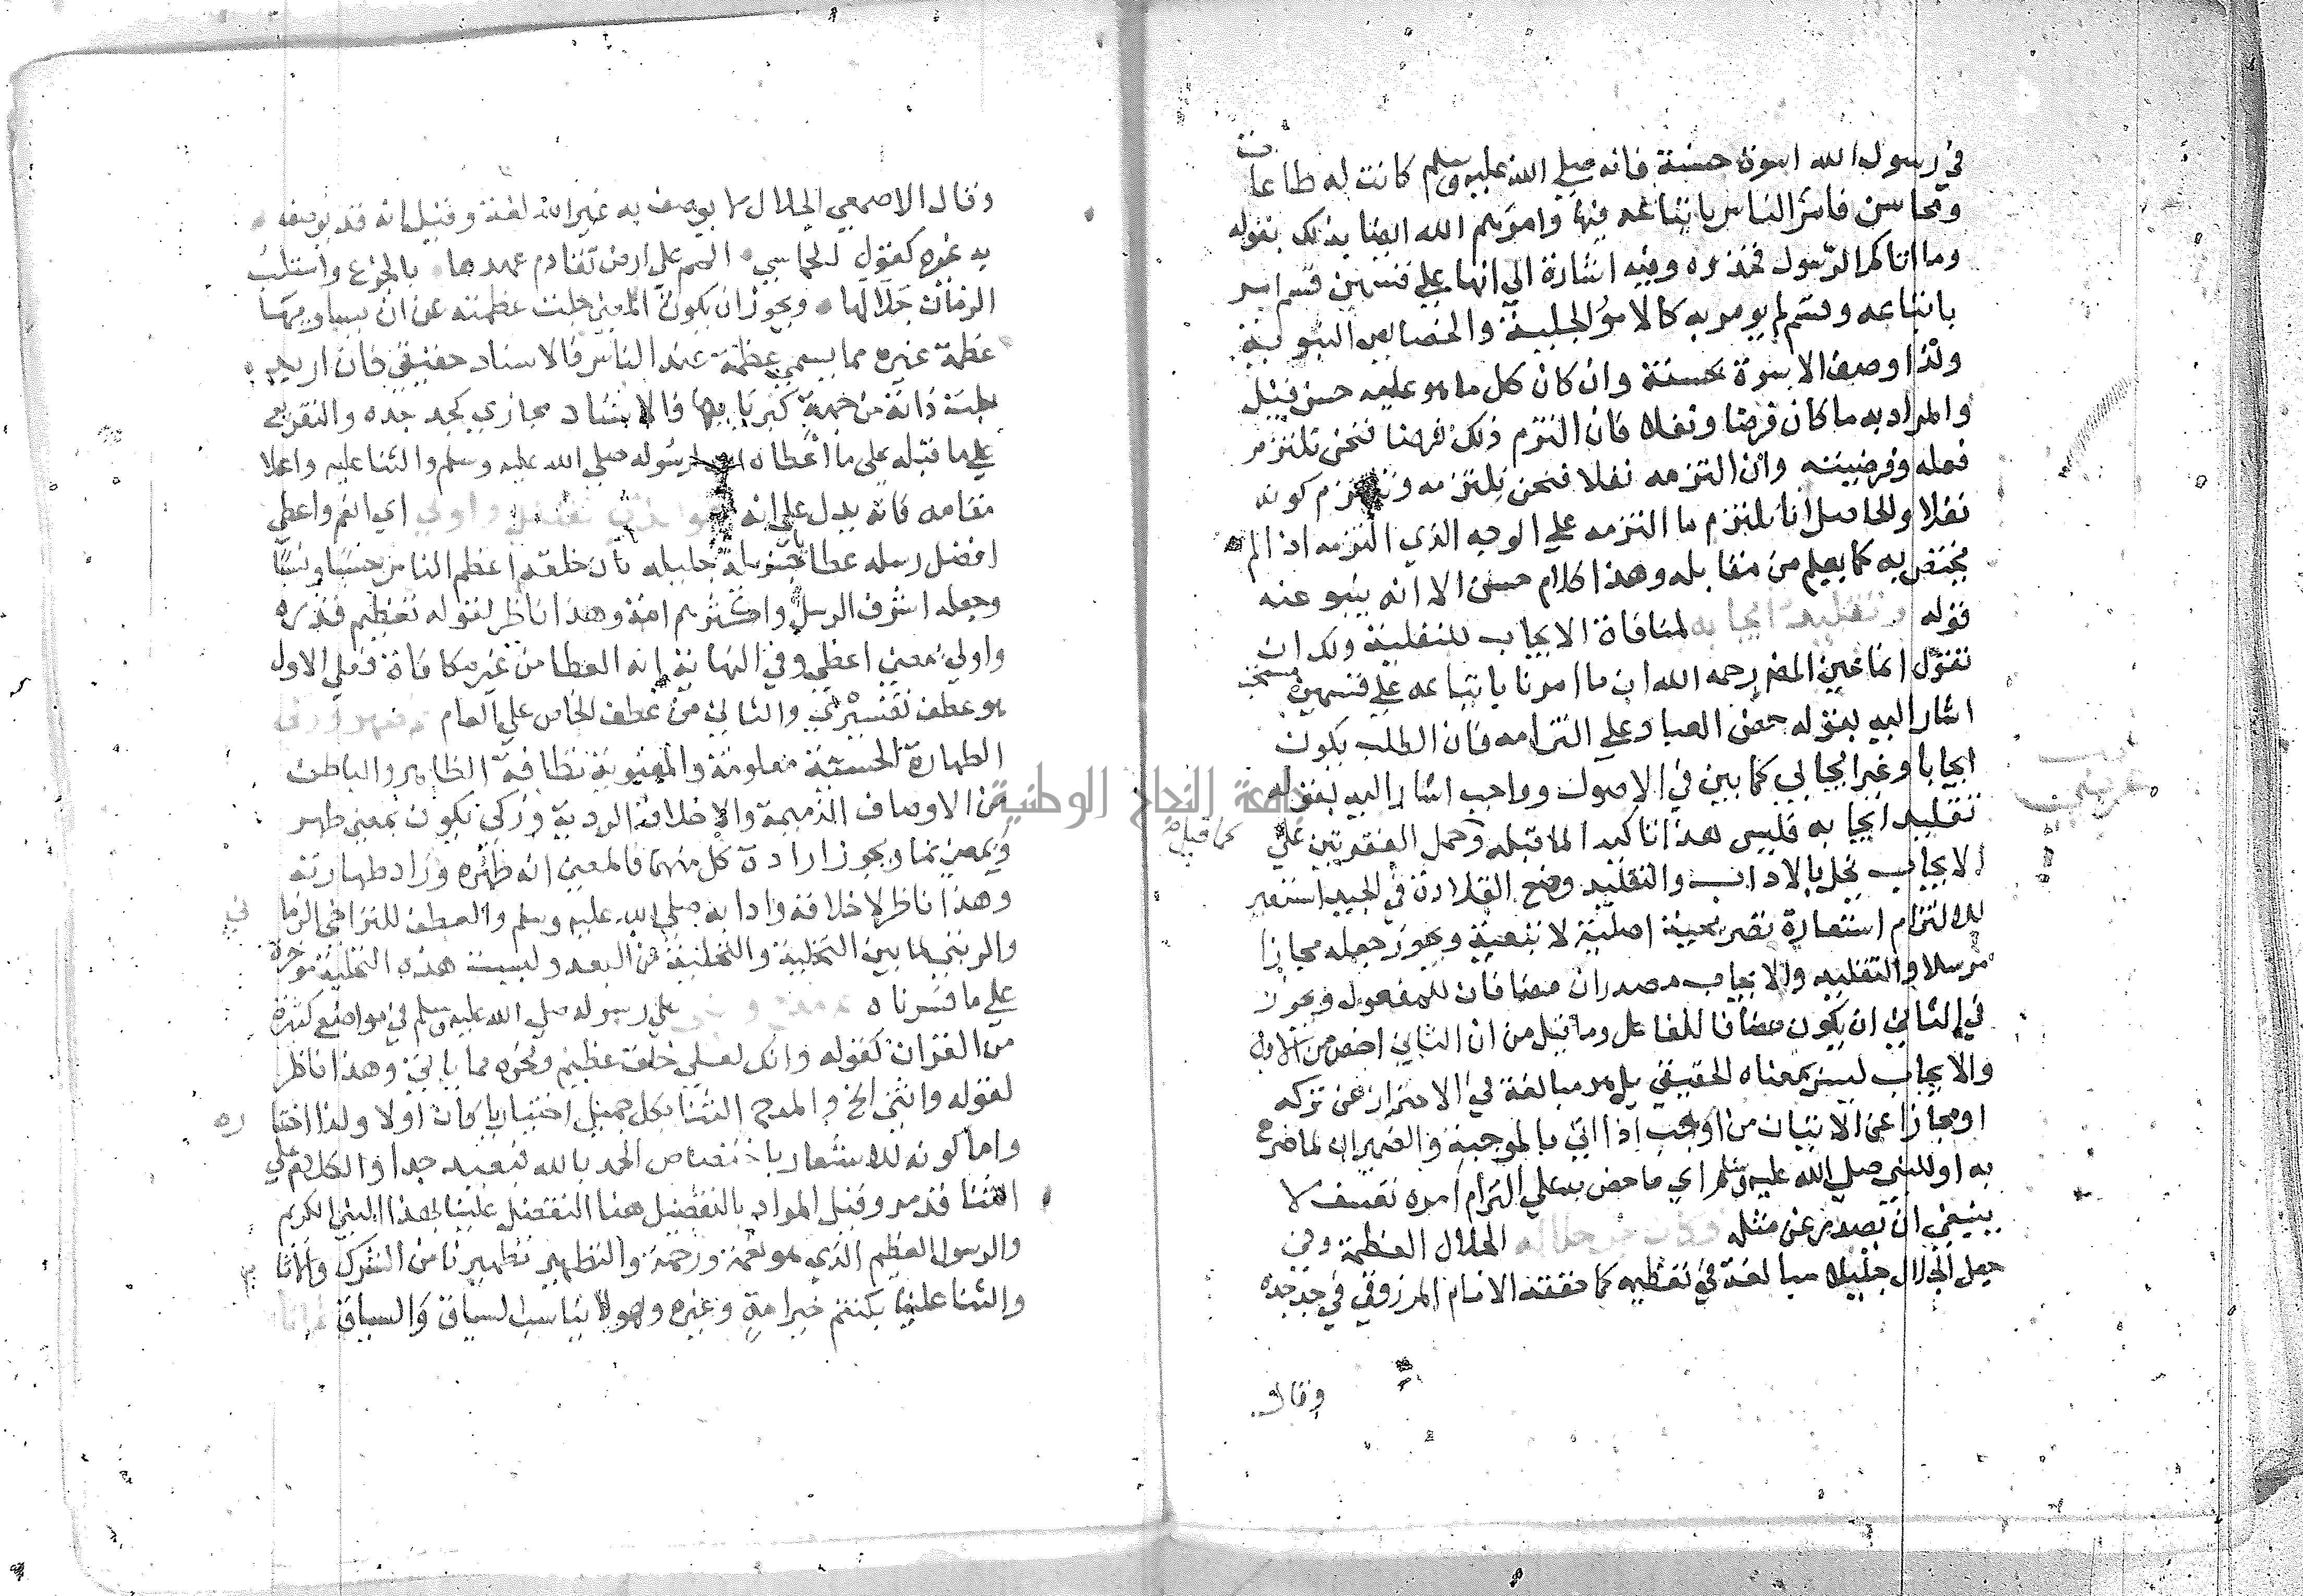 في رسول الله اسوة حسنة فانه صلي الله عليه وسلم كانت له طاعات
ومحاسن فامر الناس باتباعه فيها وامرهم الله ايضا بذلك بقوله
وما اتاكم الرسول فخذوه وفيه اشارة الي انها علي قسمين قسم امر
باتباعه وقسم لم يومر به كالامور الجبلية والخصايص النبوية
ولذا وصف الاسوة بحسنة وان كان كل ما هو عليه حسن قيل
والمراد به ما كان فرضا ونفلا فان التزم ذلك فرضا فنحن نلتزم
فعله وفرضيته وان التزمه نفلا فنحن نلتزمه ونلتزم كونه
نفلا والحاصل انا نلتزم ما التزمه علي الوجه الذي التزمه اذا لم
يختص به كما يعلم من مقابله وهذا كلام حسن الا انه ينبو عنه
قوله وتقليد ايجابه لمنافاة الايجاب للنفلية ولك ان
نقول انما عني المص رحمه الله ان ما امرنا باتباعه علي قسمين مستحب
اشار اليه بقوله حض العباد علي التزامه فان الطلب يكون
ايجابا وغير ايجابي كما بين في الاصول وواجب اشار اليه بقوله
تقليد ايجابه فليس هذا تاكيدا لما قبله وحمل الفقرتين علي
كما قيل
الايجاب مخل بالاداب والتقليد وضع القلادة في الجيد استعير
للالتزام استعارة تصريحية اصلية لا تبعية ويجوز جعله مجازا
مرسلا والتقليد والايجاب مصدران مضافان للمفعول ويجوز
في الثاني ان يكون مضافا للفاعل وما قيل من ان الثاني اخص من الاول
والايجاب ليس بمعناه الحقيقي بل هو مبالغة في الاحتراز عن تركه
او مجازا عن الاتيان من اوجب اذا اتي بالموجبة والضميران لما صرح
به او للنبي صلي الله عليه وسلم اي ما حض به علي التزام امره تعسف لا
ينبغي ان يصدر عن مثله الجلال العظمة وفي
جعل الجلال جليلا مبالغة في تعظيمه كما حققه الامام المرزوقي في جد جده
وقال
وقال الاصمعي الجلال لا يوصف به غير الله لغة وقيل انه قد يوصف
به غيره كقول الحماسي المم علي ارض تقادم عهدها بالجزع واستلب
الزمان جلالها ويجوز ان يكون المعني جلت عظمته عن ان يساويها
عظمة غيره مما يسمي عظمة عند الناس فالاسناد حقيقي فان اريد
جلت ذاته من جهة كبريايها فالاسناد مجازي كجد جده والتفريع
علي ما قبله علي ما اعطاه الله رسوله صلي الله عليه وسلم والثنا عليه واعلا
مقامه فانه يدل علي انه هو الذي تفضل واولي اي انعم واعطي
افضل رسله عطايا جزيلة جليله بان خلقه اعظم الناس حسبا ونسبا
وجعله اشرف الرسل واكثرهم امة وهذا ناظر لقوله تعظيم قدره
واولي بمعني اعطي وفي النهاية انه العطا من غير مكافاة فعلي الاول
هو عطف تفسيري والثاني من عطف الخاص علي العام
الطهارة الحسية معلومة والمعنوية نظافة الظاهر والباطن
من الاوصاف الذميمة والاخلاق الردية وزكي تكون بمعني طهر
وبمعني نما ويجوز ارادة كل منهما فالمعني انه طهره وزاد طهارته
وهذا ناظر لاخلاقه وادابه صلي الله عليه وسلم والعطف للتراخي الزماني
والرتبي لما بين التخلية والتحلية من البعد وليست هذه التخلية موخرة
علي ما فسرناه علي رسوله صلي الله عليه وسلم في مواضع كثيرة
من القران كقوله وانك لعلي خلق عظيم ونحوه مما ياتي وهذا ناظر
لقوله واثني الخ والمدح الثنا بكل جميل اختياريا كان اولا ولذا اختاره
واما كونه للاشعار باختصاص الحمد بالله فبعيد جدا والكلام علي
الثنا قد مر وقيل المراد بالتفضيل هنا التفضل علينا بهذا النبي الكريم
والرسول العظيم الذي هو نعمة ورحمة والتطهير تطهيرنا من الشرك والاثام
والثنا علينا بكنتم خير امة وغيره وهو لا يناسب السياق والسباق
جامعة النجاح الوطنية